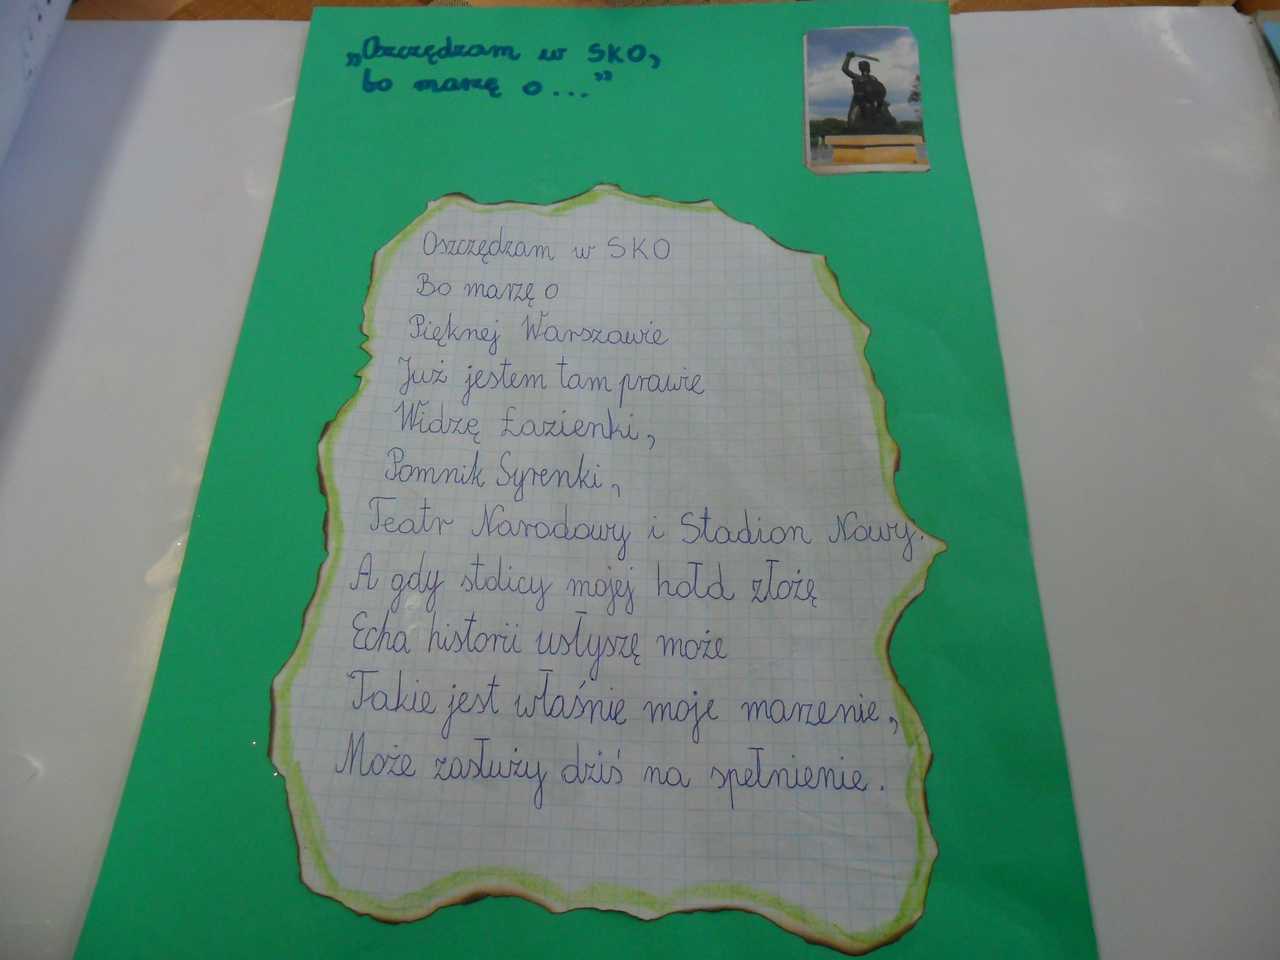 „Oszczędzam w SKO,
bo marzę o..."
Oszczędzam w SKO
Bo marzę o
Pięknej Warszawie
Już jestem tam prawie
Widzę Łazienki,
Pomnik Syrenki,
Teatr Narodowy i Stadion Nowy.
A gdy stolicy mojej hołd złożę
Echa historii usłyszę może
Takie jest właśnie moje marzenie,
Może zasłuży dziś na spełnienie.